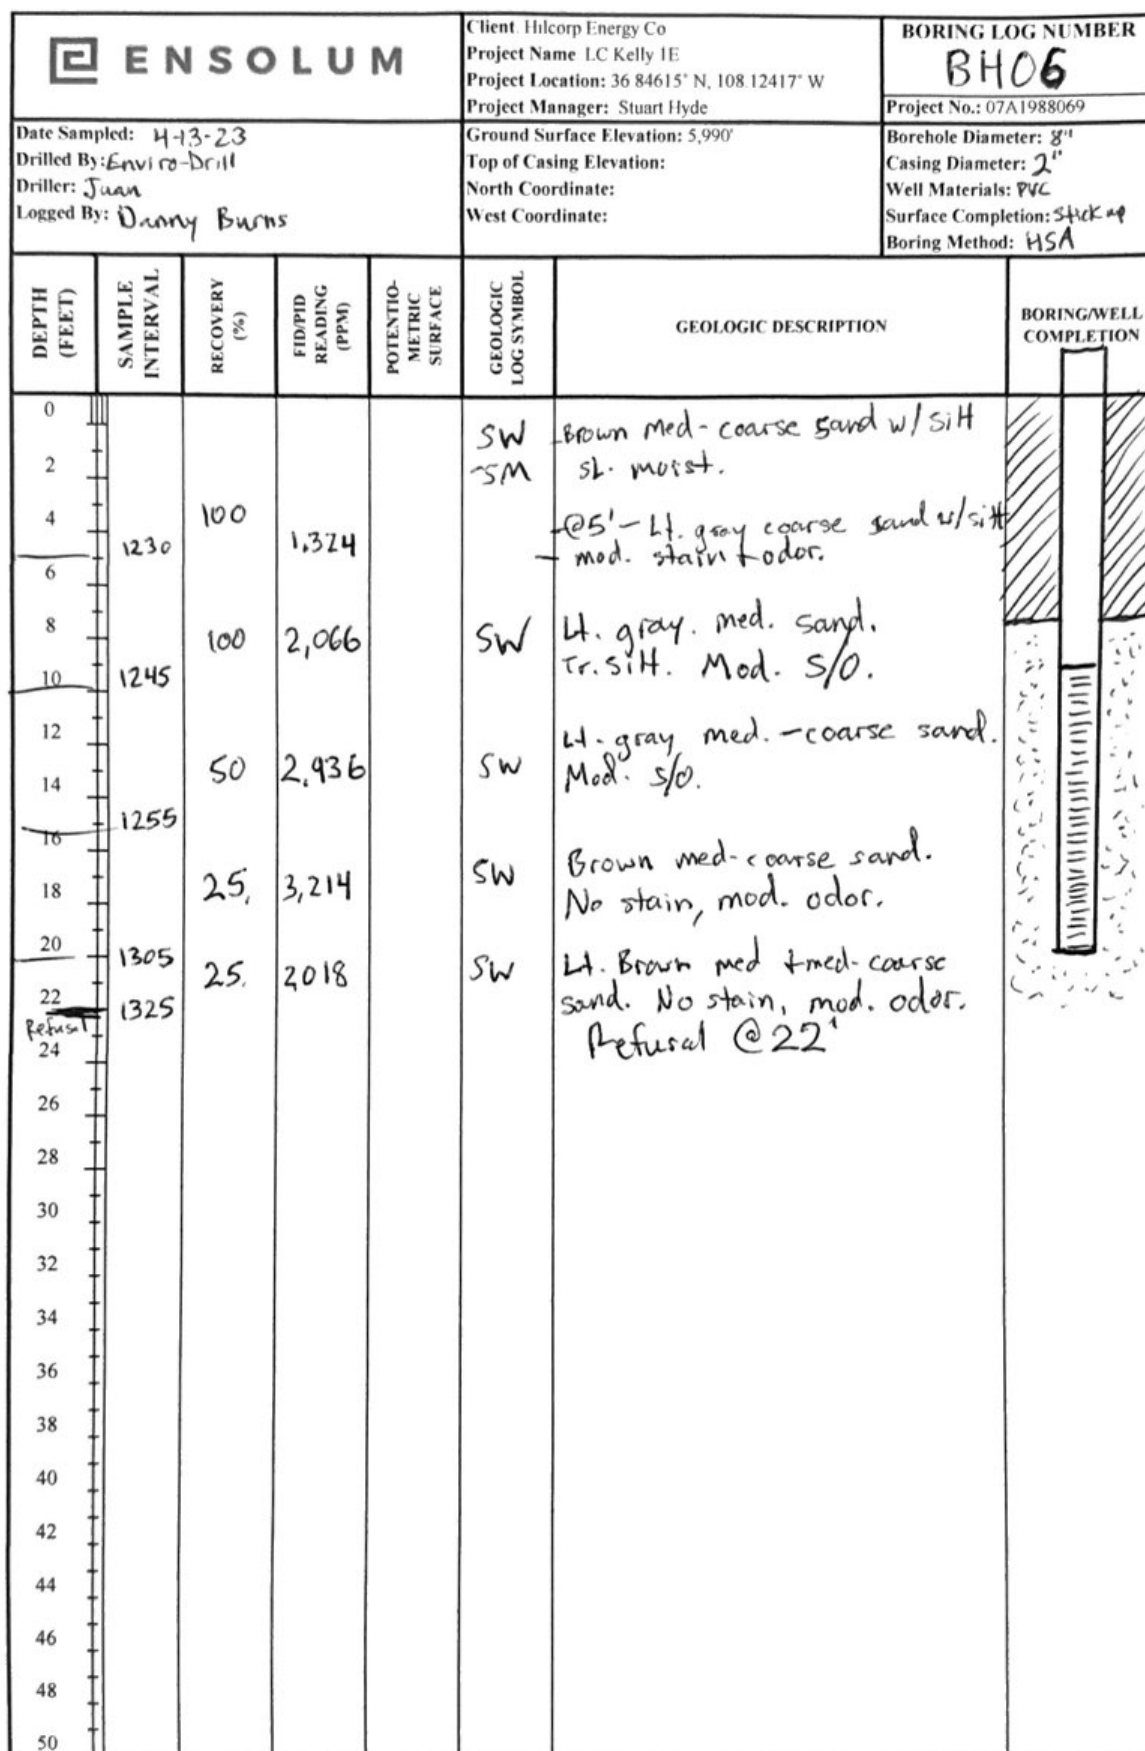 ENSOLUM
Client: Hilcorp Energy Co
Project Name LC Kelly 1E
Project Location: 36 84615° N, 108 12417° W
Project Manager: Stuart Hyde
BORING LOG NUMBER
BH06
Project No.: 07A1988069
Date Sampled: 4-13-23
Drilled By: Enviro-Drill
Driller: Juan
Logged By: Danny Burns
Ground Surface Elevation: 5,990'
Top of Casing Elevation:
North Coordinate:
West Coordinate:
Borehole Diameter: 8"
Casing Diameter: 2"
Well Materials: PVC
Surface Completion: Stick up
Boring Method: HSA
DEPTH
(FEET)
SAMPLE
INTERVAL
RECOVERY
(%)
FID/PID
READING
(PPM)
POTENTIO-
METRIC
SURFACE
GEOLOGIC
LOG SYMBOL
GEOLOGIC DESCRIPTION
BORING/WELL
COMPLETION
0
SW -Brown med-coarse sand w/ silt
2 -SM sl. moist.
4 100 -@5' - Lt. gray coarse sand w/silt
1230 1,324 - mod. stain + odor.
6
8 100 2,066 SW Lt. gray. med. sand.
10 1245 Tr. silt. Mod. S/O.
12 Lt. gray med. - coarse sand.
14 50 2,936 SW Mod. S/O.
16 1255
18 25. 3,214 SW Brown med-coarse sand.
No stain, mod. odor.
20 1305 25. 2,018 SW Lt. Brown med + med-coarse
22 1325 sand. No stain, mod. odor.
Refusal Refusal @ 22'
24
26
28
30
32
34
36
38
40
42
44
46
48
50